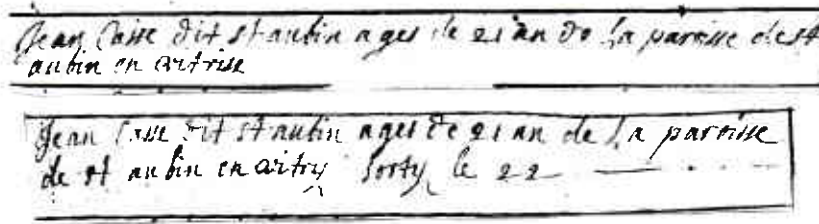 Jean Casse dit st aubin ages de 21 an de La paroisse de st
aubin en artrise
Jean Casse dit st aubin ages de 21 an de La paroisse
de st aubin en artry sorty le 22